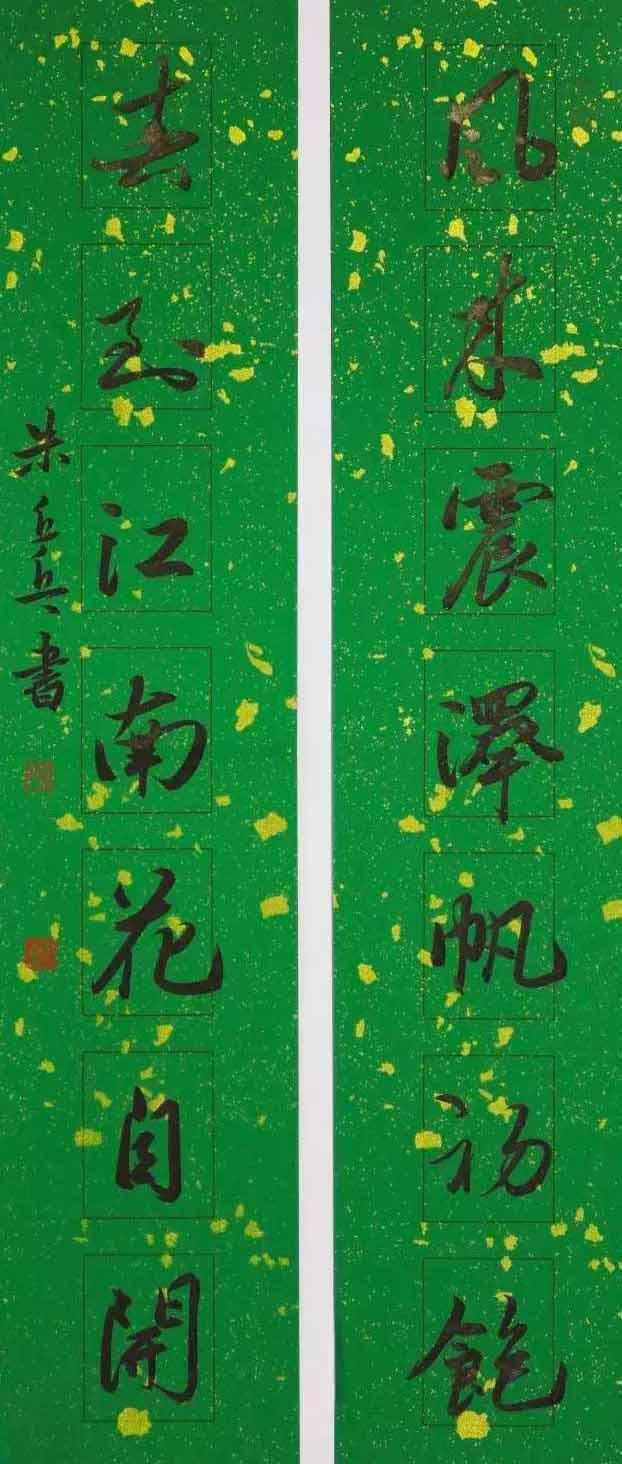 風来震澤帆初飽
春到江南花自開
朱丘兵書